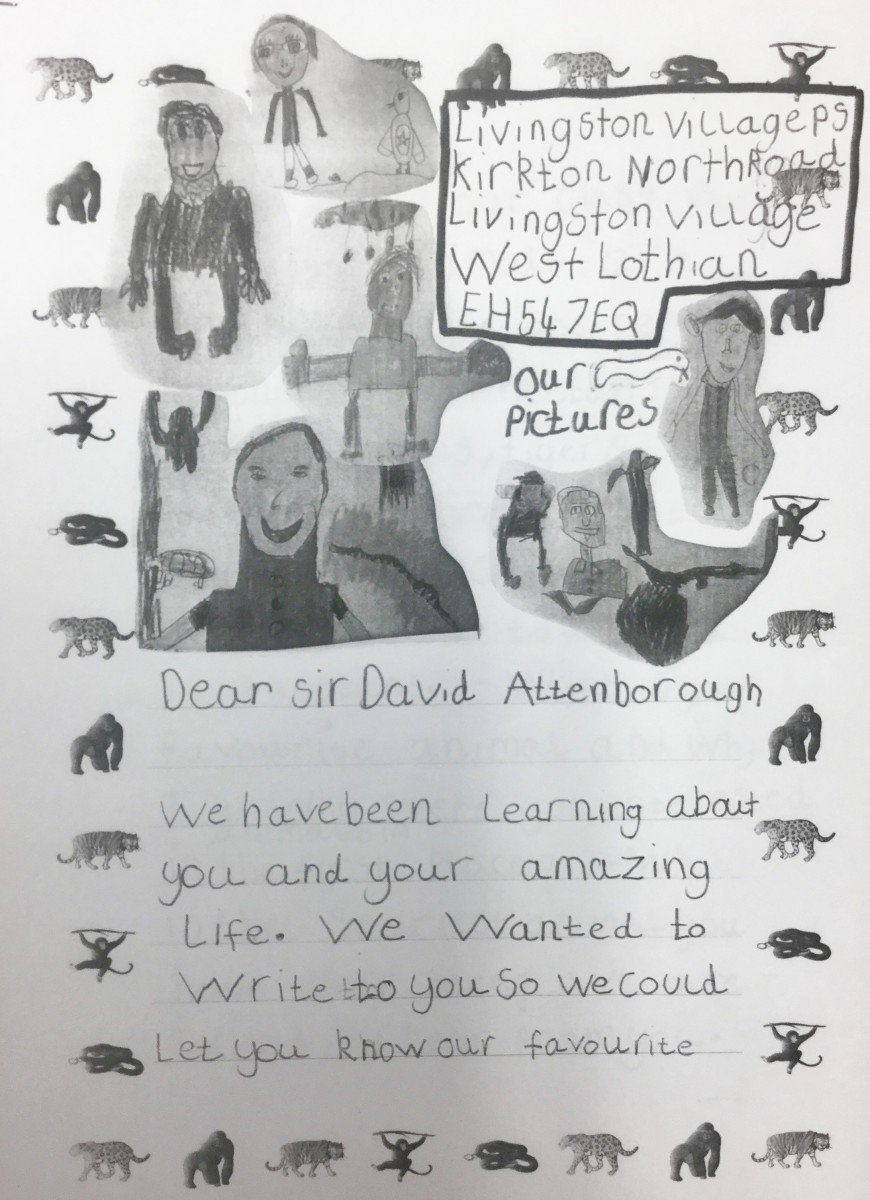 Livingston Village PS
Kirkton North Road
Livingston Village
West Lothian
EH54 7EQ
our
Pictures
Dear Sir David Attenborough
We have been learning about
you and your amazing
Life. We Wanted to
Write to you So we could
Let you know our favourite